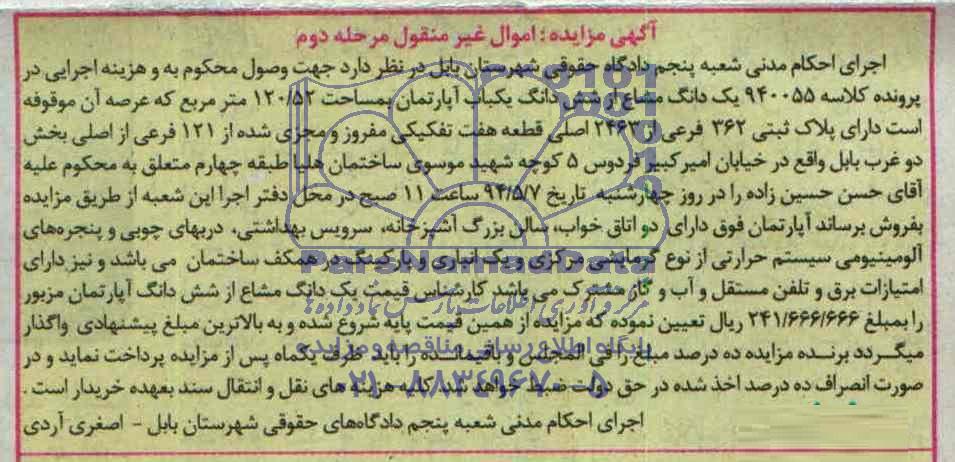 آگهی مزایده: اموال غیر منقول مرحله دوم
اجرای احکام مدنی شعبه پنجم دادگاه حقوقی شهرستان بابل در نظر دارد جهت وصول محکوم به و هزینه اجرایی در
پرونده کلاسه ۹۴۰۰۵۵ یک دانگ مشاع از شش دانگ یکباب آپارتمان بمساحت ۱۲۰/۵۲ متر مربع که عرصه آن موقوفه
است دارای پلاک ثبتی ۳۶۲ فرعی از ۲۴۶۳ اصلی قطعه هفت تفکیکی مفروز و مجزی شده از ۱۲۱ فرعی از اصلی بخش
دو غرب بابل واقع در خیابان امیرکبیر فردوس ۵ کوچه شهید موسوی ساختمان هلیا طبقه چهارم متعلق به محکوم علیه
آقای حسن حسین زاده را در روز چهارشنبه تاریخ ۹۴/۵/۷ ساعت ۱۱ صبح در محل دفتر اجرا این شعبه از طریق مزایده
بفروش برساند آپارتمان فوق دارای دو اتاق خواب، سالن بزرگ آشپزخانه، سرویس بهداشتی، دربهای چوبی و پنجره‌های
آلومینیومی سیستم حرارتی از نوع گرمایشی مرکزی و یک انباری و پارکینگ در همکف ساختمان می باشد و نیز دارای
امتیازات برق و تلفن مستقل و آب و گاز مشترک می باشد کارشناس قیمت یک دانگ مشاع از شش دانگ آپارتمان مزبور
را بمبلغ ۲۴۱/۶۶۶/۶۶۶ ریال تعیین نموده که مزایده از همین قیمت پایه شروع شده و به بالاترین مبلغ پیشنهادی واگذار
میگردد برنده مزایده ده درصد مبلغ را فی المجلس و باقیمانده را باید ظرف یکماه پس از مزایده پرداخت نماید و در
صورت انصراف ده درصد اخذ شده در حق دولت ضبط خواهد شد کلیه هزینه های نقل و انتقال سند بعهده خریدار است.
اجرای احکام مدنی شعبه پنجم دادگاه‌های حقوقی شهرستان بابل - اصغری آردی
ParsNamadData
مرکز فرآوری اطلاعات پارس نماد داده‌ها
پایگاه اطلاع رسانی مناقصه و مزایده
۰۲۱-۸۸۳۴۹۶۷۰-۵